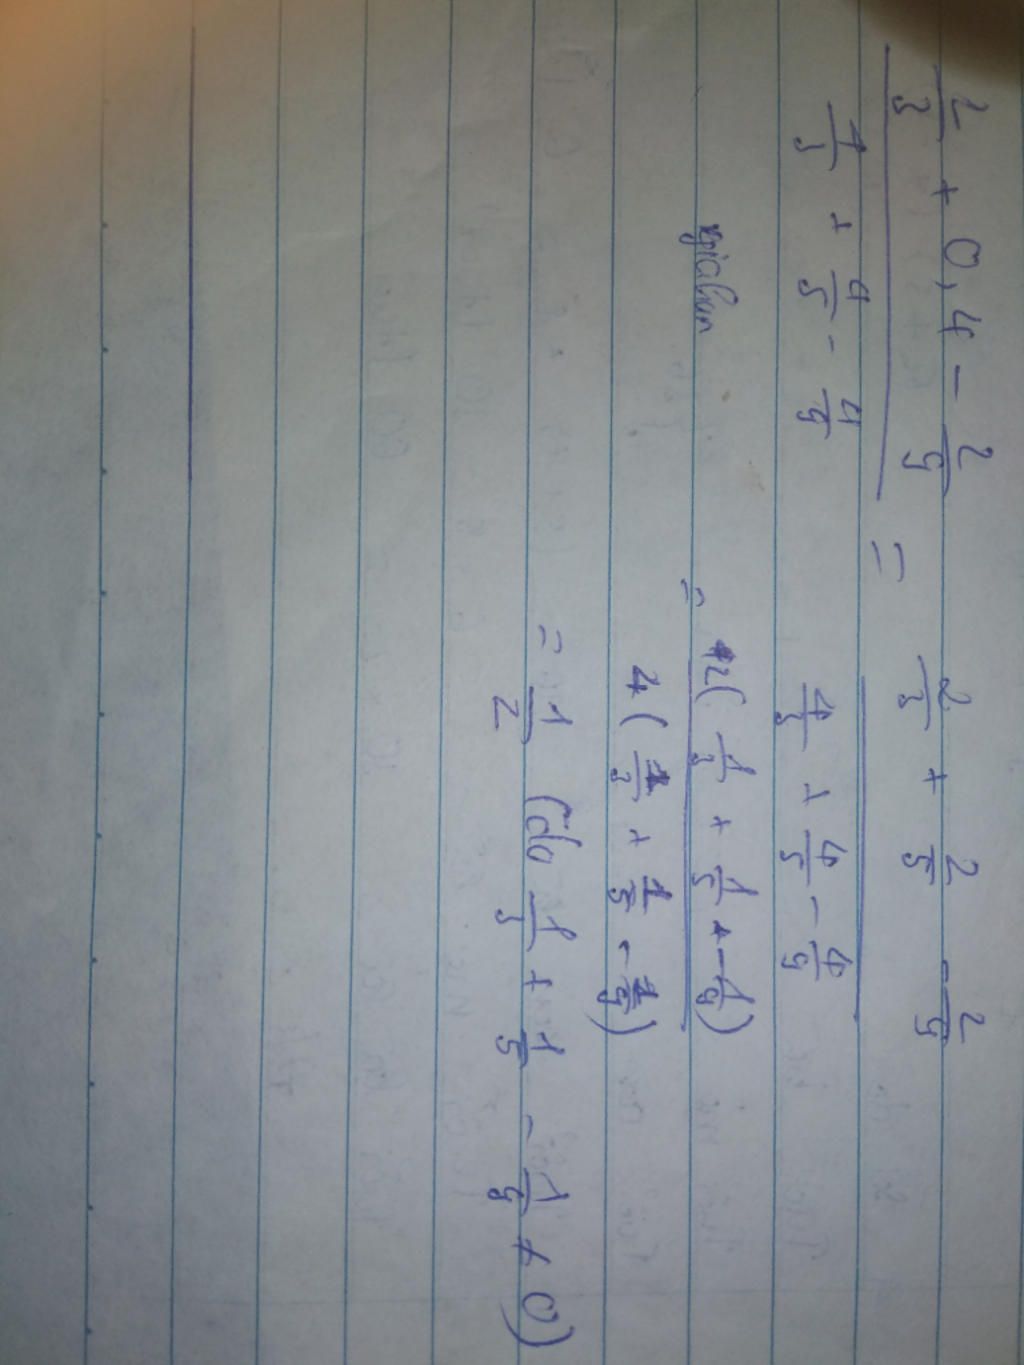 2/3 + 0,4 - 2/9 = 2/3 + 2/5 - 2/9
4/3 + 4/5 - 4/9 4/3 + 4/5 - 4/9
= 2(1/3 + 1/5 - 1/9)
4(1/3 + 1/5 - 1/9)
= 1/2 (do 1/3 + 1/5 - 1/9 ≠ 0)